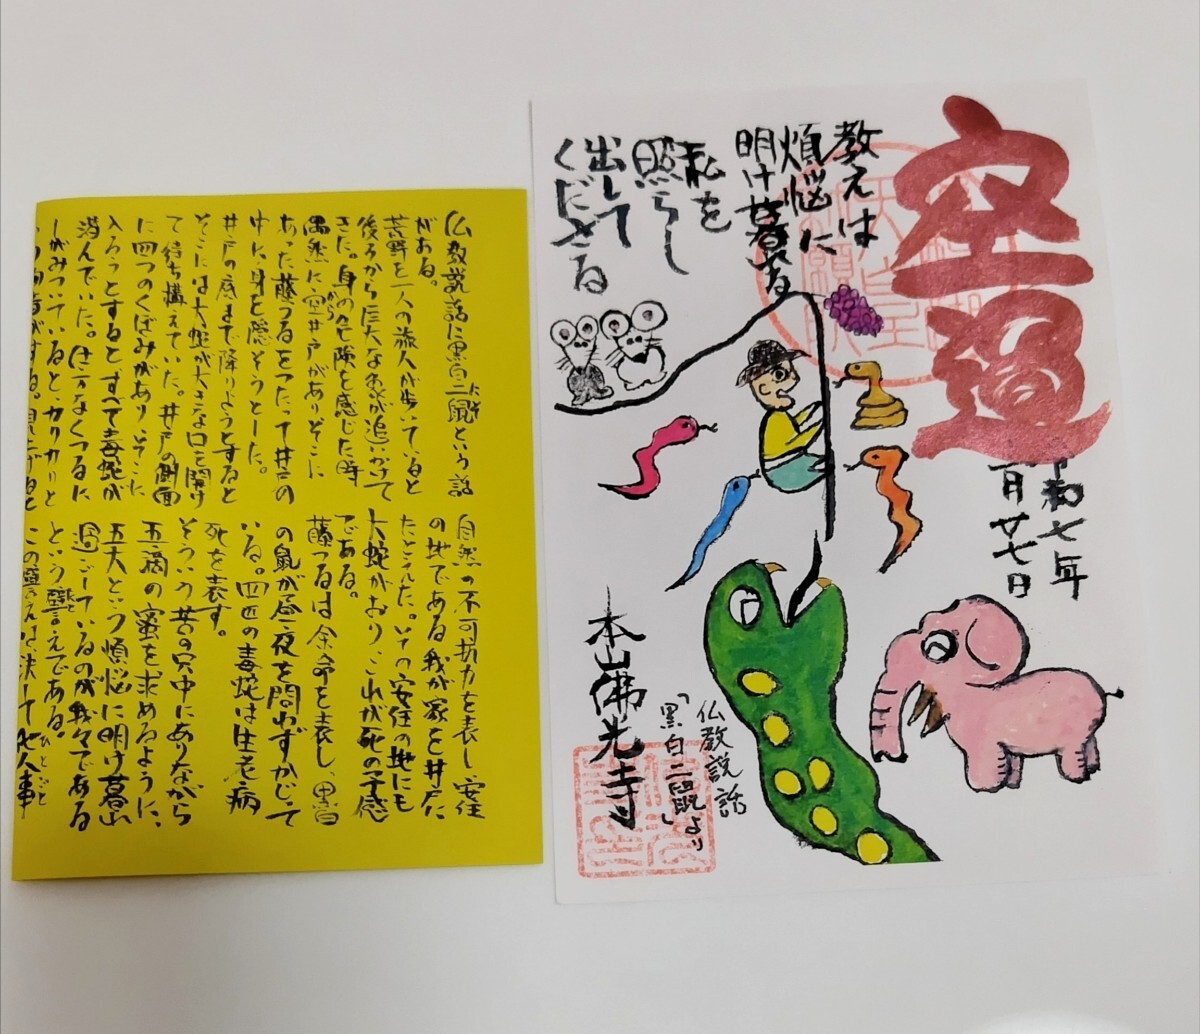 仏教説話に黒白二鼠という話
がある。
荒野を一人の旅人が歩いていると
後ろから巨大な象が追いかけて
きた。身の危険を感じた時
偶然に空井戸がありそこに
あった藤つるをつたって井戸の
中に身を隠そうとした。
井戸の底まで降りようとすると
そこには大蛇が大きな口を開け
て待ち構えていた。井戸の側面
に四つのくぼみがあり、そこに
入ろうとするとすべて毒蛇が
潜んでいた。仕方なくつるに
しがみついていると、カリカリと
自然の不可抗力を表し安住
の地である我が家を井戸に
たとえた。その安住の地にも
大蛇がおり、これが死の予感
である。
藤つるは余命を表し、黒白
の鼠が昼夜を問わずかじって
いる。四匹の毒蛇は生老病
死を表す。
そういう苦の穴中にありながら
五滴の蜜を求めるように、
五欲という煩悩に明け暮れ
過ごしているのが我々である
という譬えである。
この譬えは決して他人事
空過
令和七年
月廿七日
教えは
煩悩に
明け暮れる
私を
照らし
出して
くださる
仏教説話
「黒白二鼠」より
本山佛光寺